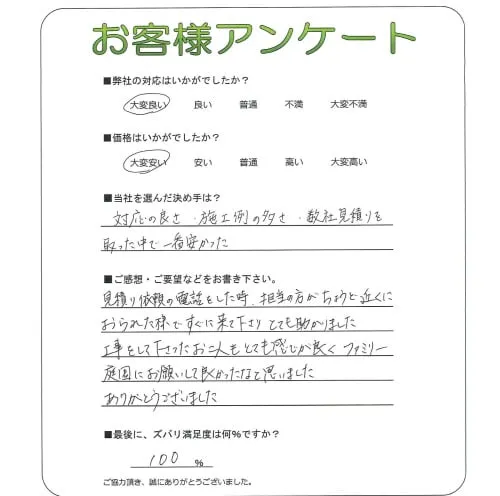 お客様アンケート
■弊社の対応はいかがでしたか?
大変良い 良い 普通 不満 大変不満
■価格はいかがでしたか?
大変安い 安い 普通 高い 大変高い
■当社を選んだ決め手は?
対応の良さ・施工例の多さ・数社見積りを
取った中で一番安かった
■ご感想・ご要望などをお書き下さい。
見積り依頼の電話をした時、担当の方がちょうど近くに
おられた様ですぐに来て下さり とても助かりました
工事をして下さったお二人もとても感じが良く ファミリー
庭園にお願いして良かったなと思いました
ありがとうございました
■最後に、ズバリ満足度は何%ですか?
100 %
ご協力頂き、誠にありがとうございました。